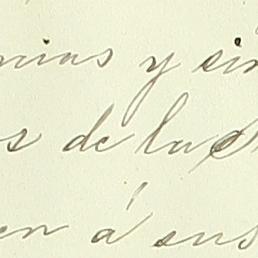 nias y sin
s de la
en á sus